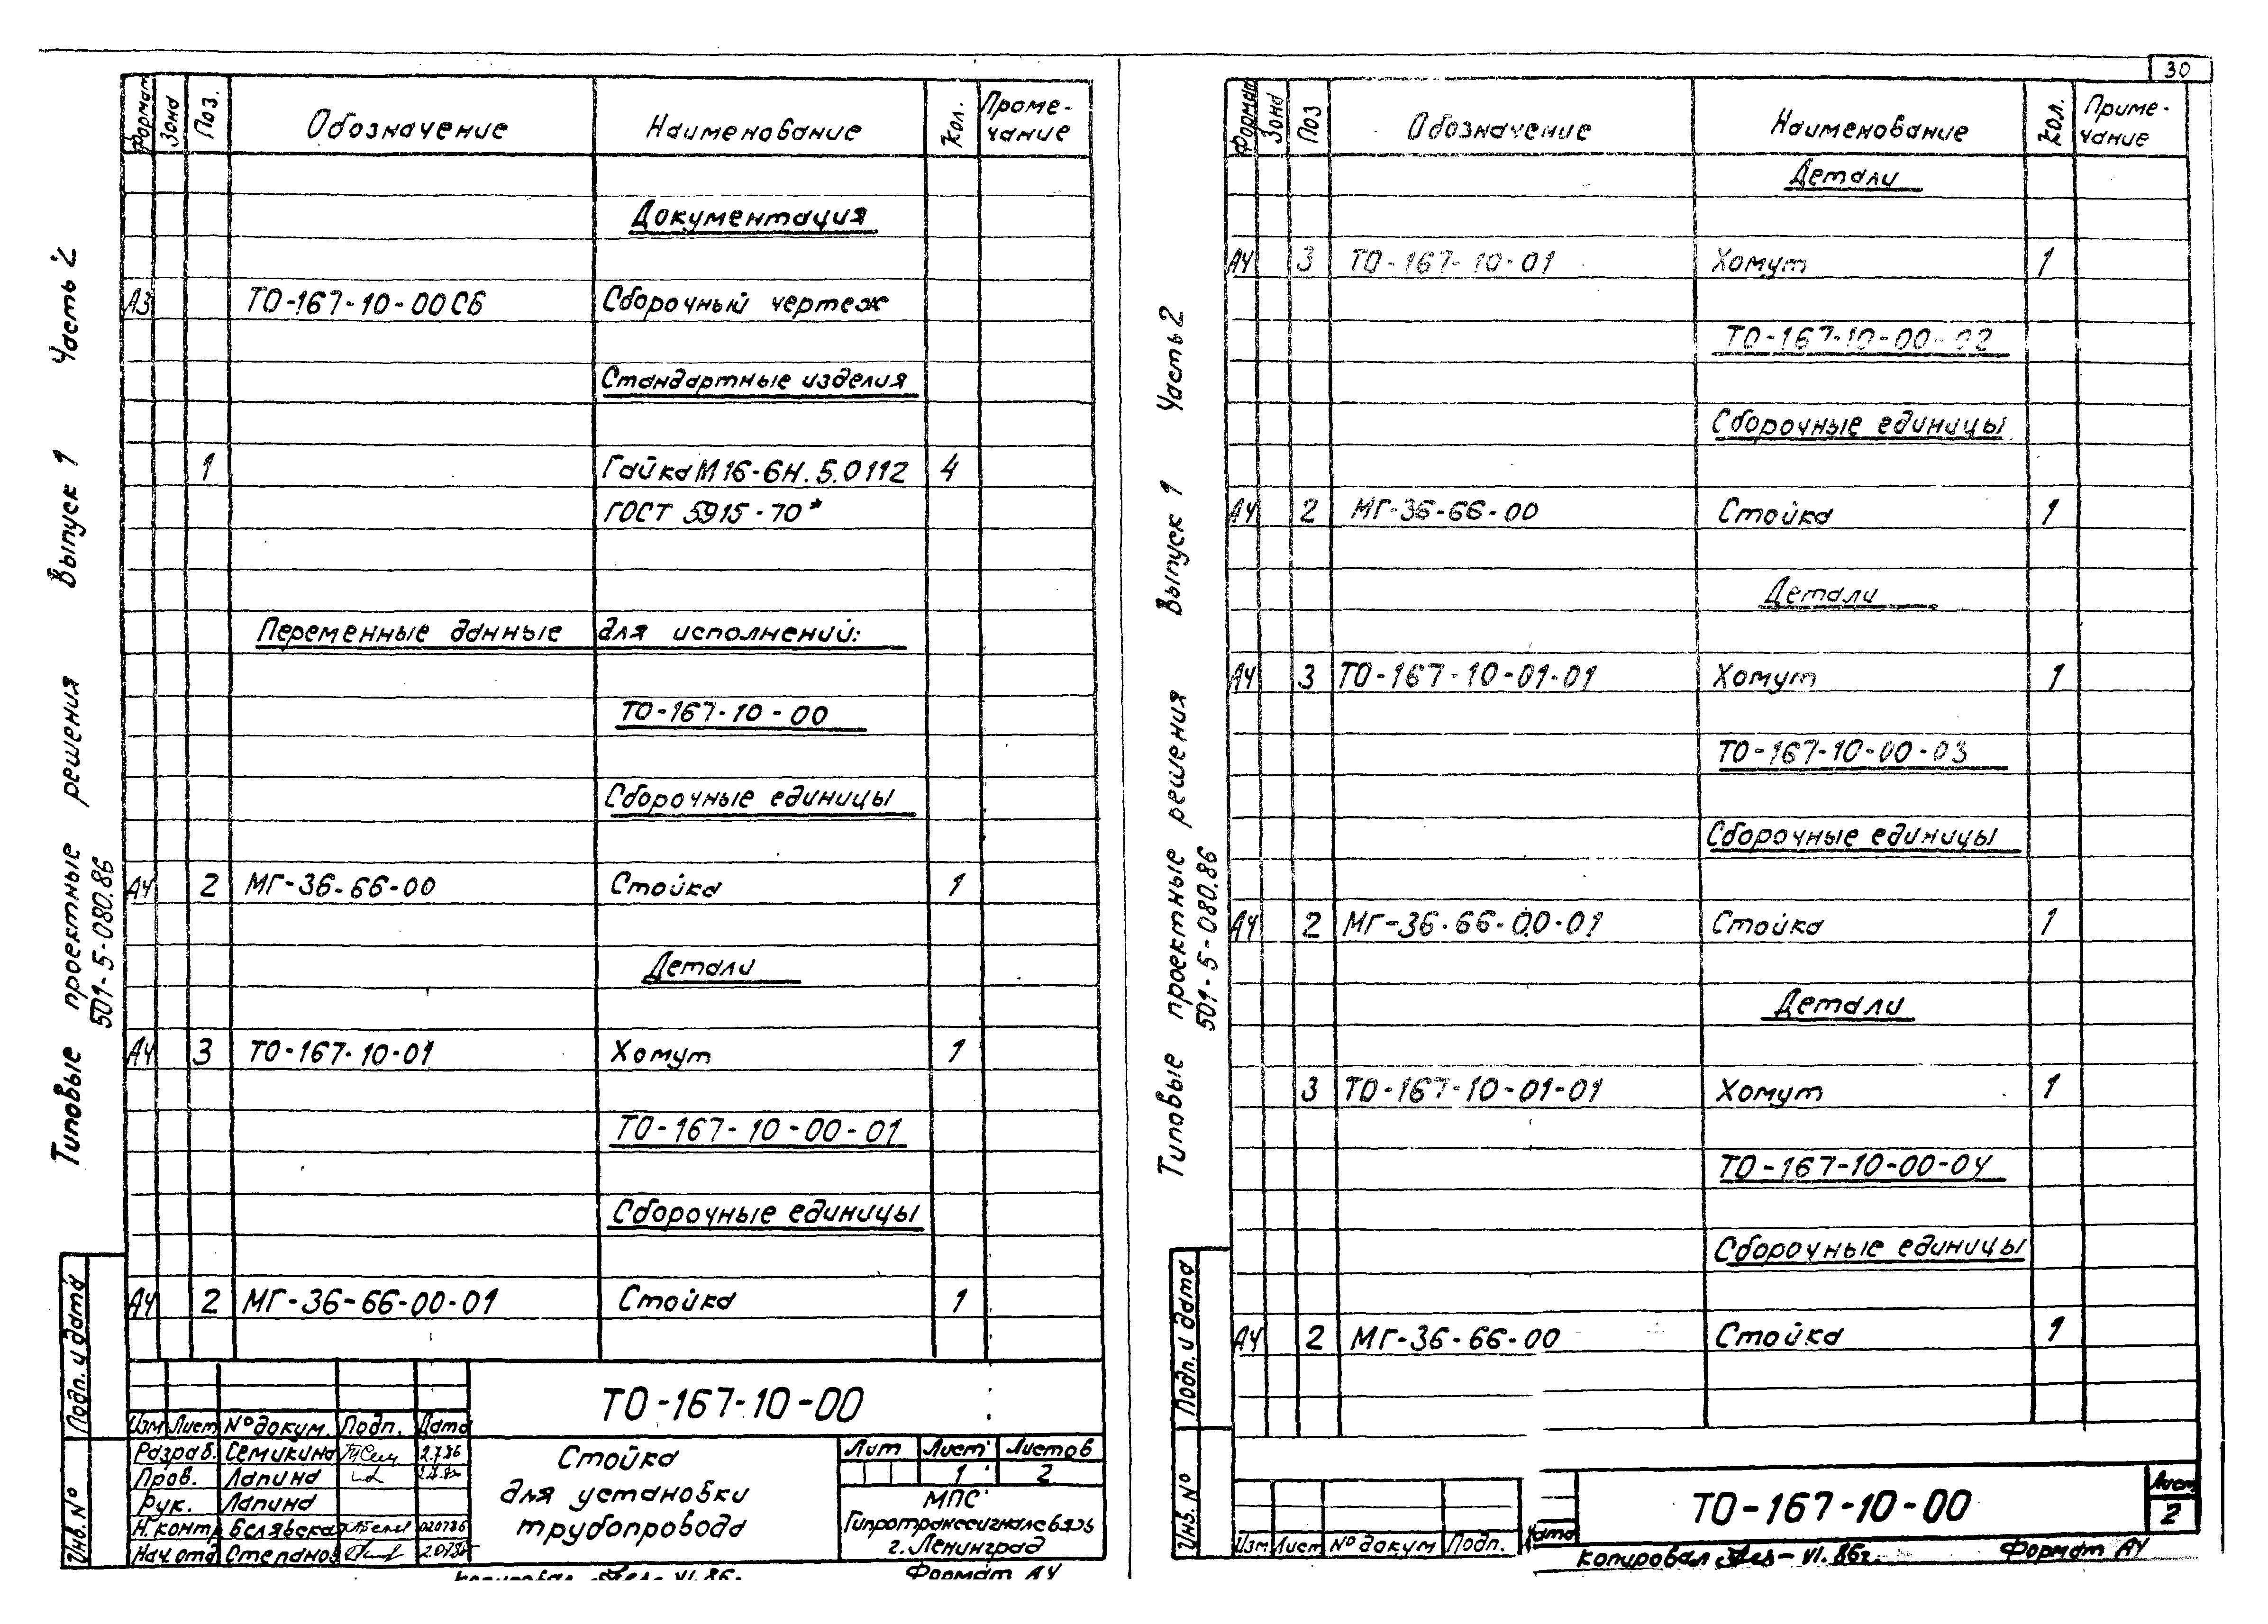 30
Типовые проектные решения Выпуск 1 Часть 2
501-5-080.86
Формат Зона Поз. Обозначение Наименование Кол. Приме-
чание
Документация
А3 ТО-167-10-00СБ Сборочный чертеж
Стандартные изделия
1 Гайка М16-6Н.5.0112 4
ГОСТ 5915-70*
Переменные данные для исполнений:
ТО-167-10-00
Сборочные единицы
А4 2 МГ-36-66-00 Стойка 1
Детали
А4 3 ТО-167-10-01 Хомут 1
ТО-167-10-00-01
Сборочные единицы
А4 2 МГ-36-66-00-01 Стойка 1
Подп. и дата
Инв. №
ТО-167-10-00
Изм Лист № докум. Подп. Дата
Разраб. Семикина 2.7.86
Пров. Лапина
Рук. Лапина
Н. контр Белявская 020786
Нач. отд Степанов
Стойка
для установки
трубопровода
Лит Лист Листов
1 2
МПС
Гипротранссигналсвязь
г. Ленинград
Копировал VI.86г. Формат А4
Типовые проектные решения Выпуск 1 Часть 2
501-5-080.86
Формат Зона Поз Обозначение Наименование Кол. Приме-
чание
Детали
А4 3 ТО-167-10-01 Хомут 1
ТО-167-10-00-02
Сборочные единицы
А4 2 МГ-36-66-00 Стойка 1
Детали
А4 3 ТО-167-10-01-01 Хомут 1
ТО-167-10-00-03
Сборочные единицы
А4 2 МГ-36-66-00-01 Стойка 1
Детали
3 ТО-167-10-01-01 Хомут 1
ТО-167-10-00-04
Сборочные единицы
А4 2 МГ-36-66-00 Стойка 1
Подп. и дата
Инв. №
Изм Лист № докум Подп. Дата
ТО-167-10-00
Лист
2
Копировал VI.86г. Формат А4